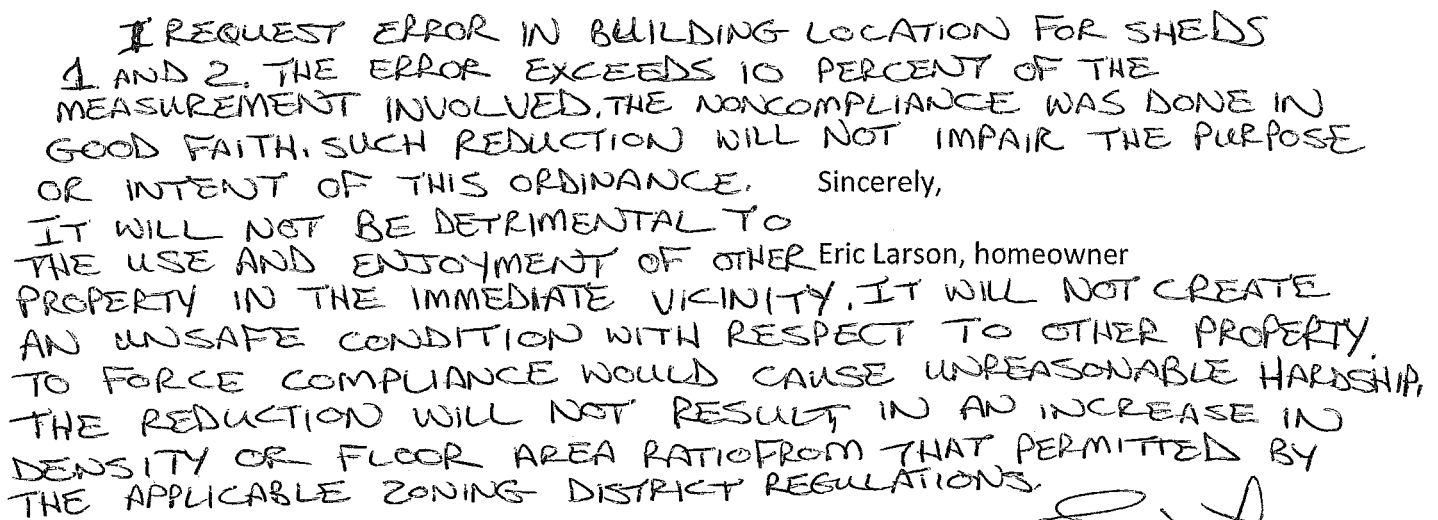 I REQUEST ERROR IN BUILDING LOCATION FOR SHEDS
1 AND 2. THE ERROR EXCEEDS 10 PERCENT OF THE
MEASUREMENT INVOLVED. THE NONCOMPLIANCE WAS DONE IN
GOOD FAITH. SUCH REDUCTION WILL NOT IMPAIR THE PURPOSE
OR INTENT OF THIS ORDINANCE. Sincerely,
IT WILL NOT BE DETRIMENTAL TO
THE USE AND ENJOYMENT OF OTHER Eric Larson, homeowner
PROPERTY IN THE IMMEDIATE VICINITY. IT WILL NOT CREATE
AN UNSAFE CONDITION WITH RESPECT TO OTHER PROPERTY.
TO FORCE COMPLIANCE WOULD CAUSE UNREASONABLE HARDSHIP.
THE REDUCTION WILL NOT RESULT IN AN INCREASE IN
DENSITY OR FLOOR AREA RATIO FROM THAT PERMITTED BY
THE APPLICABLE ZONING DISTRICT REGULATIONS.